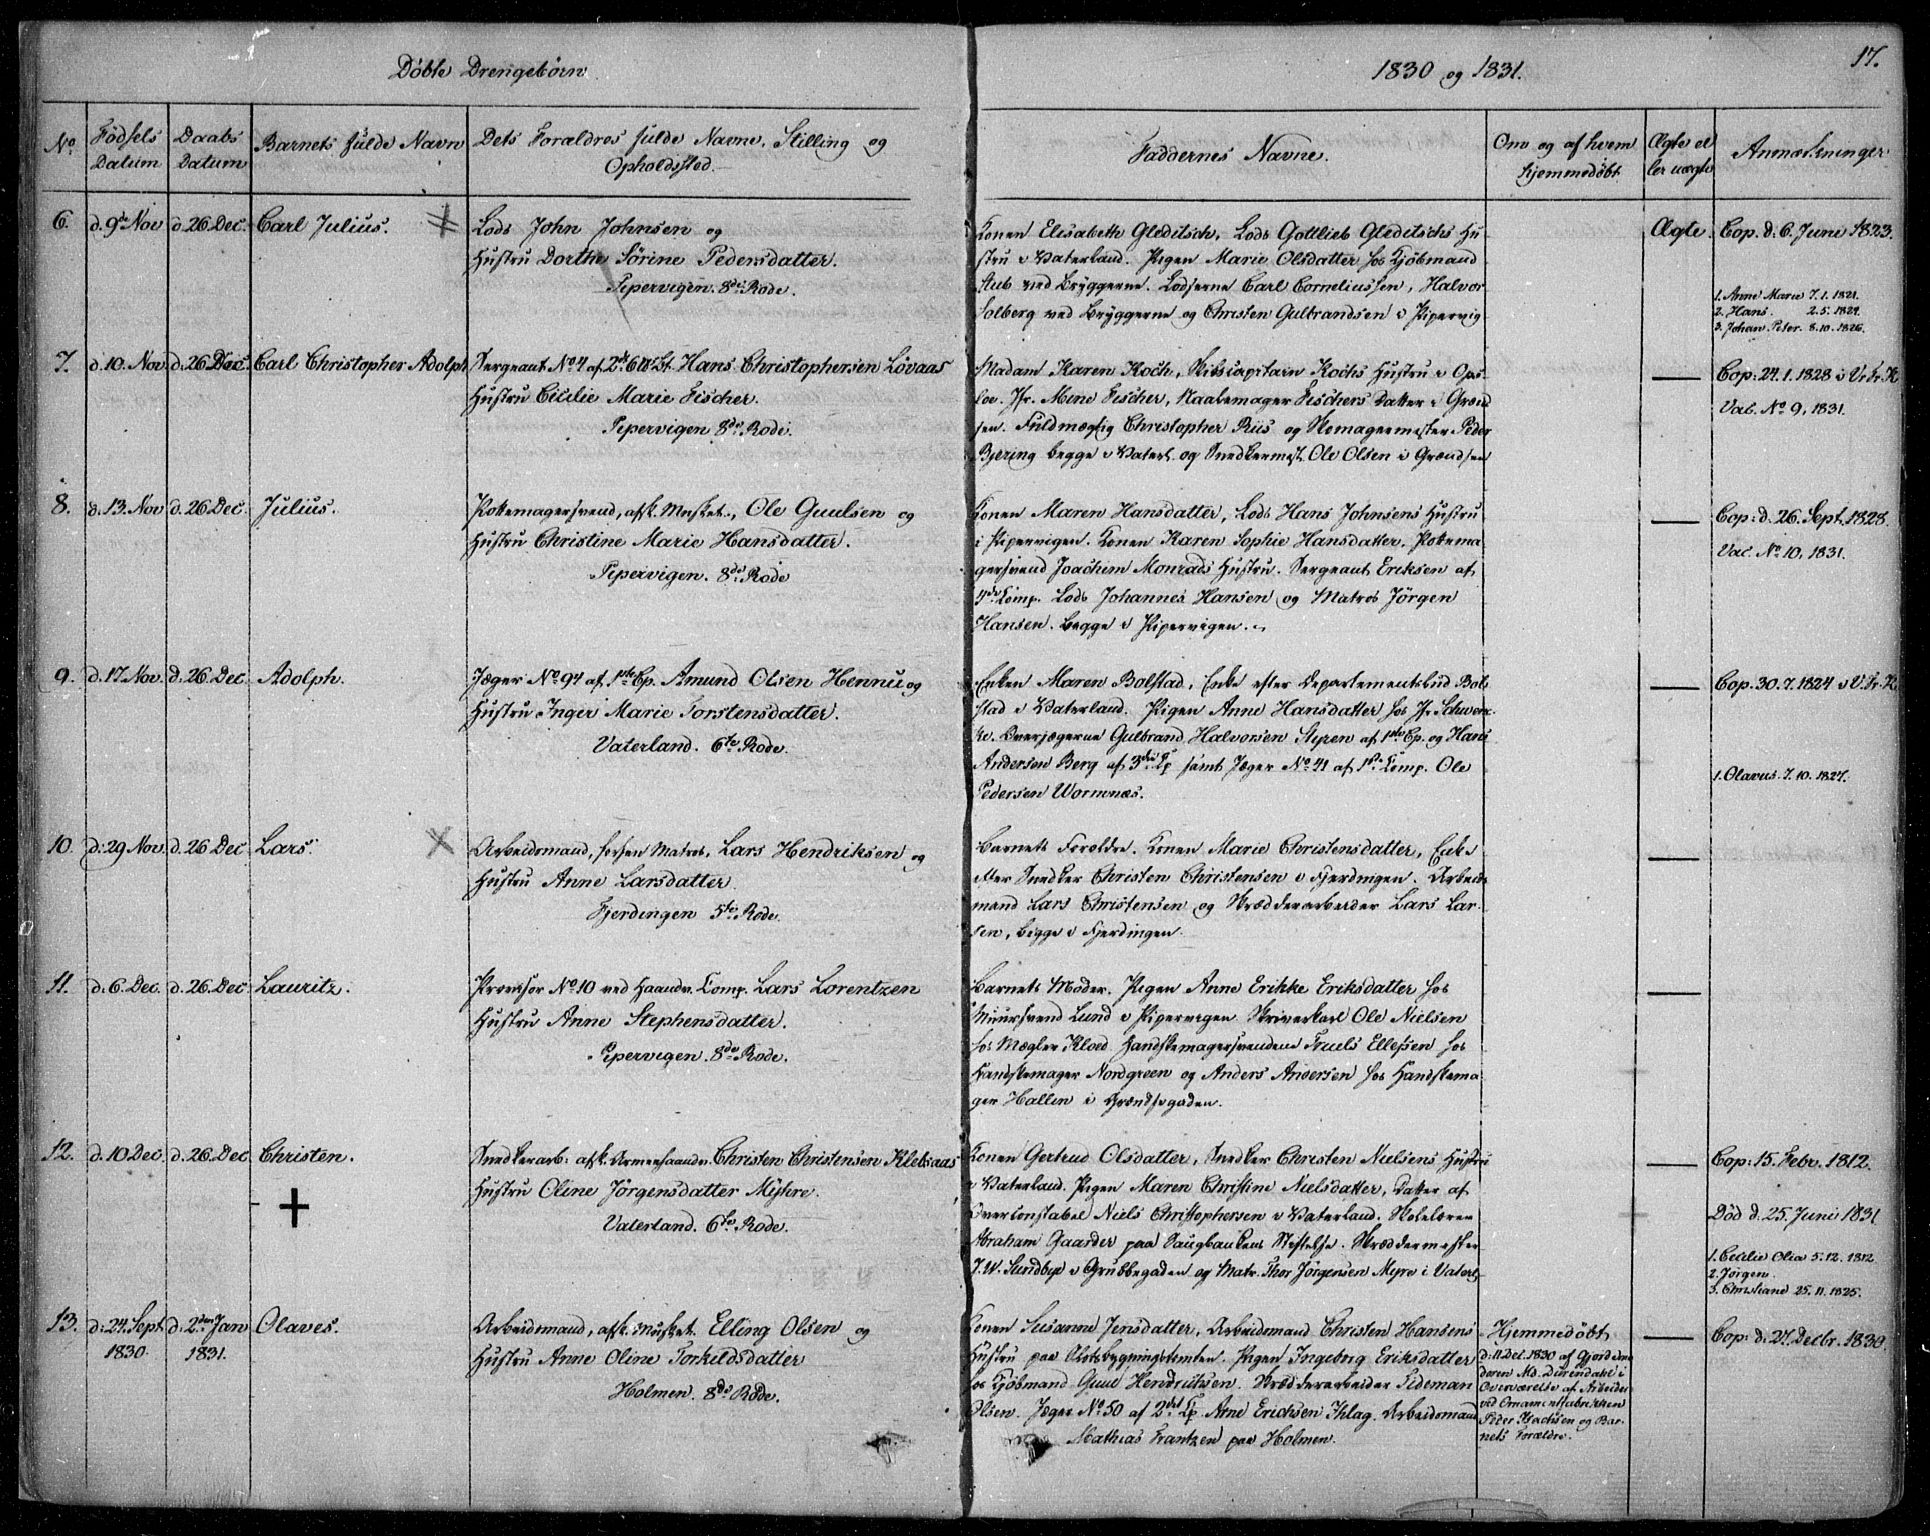 Döbte Drengebörn
1830 og 1831.
17.
No.
Födsels Datum
Daabs Datum
Barnets fulde Navn
Dets Forældres fulde Navne, Stilling og Opholdssted.
Faddernes Navne.
Om og af hvem hjemmedöbt.
Ægte eller uægte
Anmærkninger
6. d. 9de Nov d. 26 Dec. Carl Julius.
Lods John Johnsen og
Hustru Dorthe Sörine Pedersdatter.
Pepervigen. 8de Rode.
Konen Elisabeth Gleditsch, Lods Gottlieb Gleditschs Hu
stru i Vaterland. Pigen Marie Olsdatter hos Kjöbmand
Aub ved Bryggerne. Lodserne Carl Corneliussen, Halvor
Solberg ved Bryggerne og Christen Gulbrandsen i Pipervig
Ægte.
Cop. d. 6. Juni 1823.
1. Anne Marie 7. 1. 1821.
2. Hans. 2. 5. 1824.
3. Johan Peter. 8. 10. 1826.
7. d. 10. Nov. d. 26 Dec. Carl Christopher Adolph
Sergeant No 4 af 2det Hans Christophersen Lövaas
Hustru Cicilie Marie Fischer.
Pepervigen 8de Rode.
Madam Karen Koch, Skibscapitain Kochs Hustru i Ops-
loe. Jfr. Mine Fischer, Naalemager Fischers Datter i Græn
sen. Fuldmægtig Christopher Riis og Skomagermester Peder
Bjering begge i Vaterl. og Snedkermest. Ole Olsen i Grændsen
Cop: 24. 1. 1828 i Vr. Fr. K
Vac. No 9, 1831.
8. d. 13. Nov d. 26 Dec. Julius.
Pottemagersvend, afsk. Musket., Ole Guulsen og
Hustru Christine Marie Hansdatter.
Pepervigen. 8de Rode
Konen Maren Hansdatter, Lods Hans Johnsens Hustru
i Pipervigen. Konen Karen Sophie Hansdatter, Pottema-
gersvend Joachim Monrads Hustru. Sergeant Eriksen af
4de Comp. Lods Johannes Hansen og Matros Jörgen
Hansen. begge i Pipervigen.
Cop: d. 26. Sept. 1828.
Vac. No 10, 1831.
9. d. 17. Nov. d. 26. Dec Adolph.
Jæger No 94 af 1ste Cp. Amund Olsen Hennu og
Hustru Inger Marie Torstensdatter.
Vaterland. 6te Rode.
Enken Maren Bolstad, Enke efter Departementsbud Bol
stad i Vaterland. Pigen Anne Hansdatter hos Jfr. Schwenc
ke. Overjægerne Gulbrand Halvorsen Styren af 1ste Cp. og Hans
Andersen Berg af 3die Cp samt Jæger No 41 af 1ste Comp. Ole
Pedersen Wormnæs.
Cop. 30. 7. 1824 i V. Fr. K
1. Olavus. 7. 10. 1827.
10. d: 29 Nov. d. 26 Dec Lars.
Arbeidsmand, forhen Matros, Lars Hendriksen og
Hustru Anne Larsdatter
Fjerdingen 5te Rode.
Barnets Foroldre. Konen Marie Christensdatter, Enke
efter Snedker Christen Christensen i Fjerdingen. Arbeids
mand Lars Christensen og Skrædderarbeider Lars Lar-
sen, begge i Fjerdingen.
11. d. 6. Dec. d. 26. Dec Lauritz.
Provisor No 10 ved Haandv. Comp. Lars Lorentzen
Hustru Anne Stephensdatter.
Pepervigen. 8de Rode.
Barnets Moder. Pigen Anne Erikke Eriksdatter hos
Muursvend Lund i Pipervigen. Skriverkarl Ole Nielsen
hos Mægler Kloed. Handskemagersvendene Truels Ellefsen hos
Handskemager Nordgreen og Anders Andersen hos Handskema
ger Hallen i Grændsegaden.
12. d. 10 Dec. d. 26 Dec Christen.
Snedkerarb. afsk. Armeehaandv. Christen Christensen Klebaas
Hustru Oline Jörgensdatter Myhre.
Vaterland. 6te Rode.
Konen Gertrud Olsdatter, Snedker Christen Nielsens Hustru
i Vaterland. Pigen Maren Christine Nielsdatter, Datter af
Overconstabel Niels Christophersen i Vaterland. Skolelærer
Abraham Gaarder paa Waugbankens Stiftelse. Skræddermester
J. W. Sundbye i Grubbegaden og Matr. Thor Jörgensen Myre i Vaterl.
Cop: 15. Febr. 1812.
Död d. 25. Juni 1831
1. Cecilie Olia 5. 12. 1812
2. Jörgen.
3. Christiane 25. 11. 1825.
13. d: 24. Sept 1830. d: 2den Jan 1831. Olaves.
Arbeidsmand, afsk. Musket. Elling Olsen og
Hustru Anne Oline Torkeldsdatter
Holmen. 8de Rode.
Konen Susanne Jensdatter, Arbeidsmand Christen Hansens
Hustru paa Slotsbygningstomten. Pigen Ingeborg Eriksdatter
hos Kjöbmand Guul Hendrichsen. Skrædderarbeider Tideman
Olsen. Jæger No 50 af 2det Cp. Arne Erichsen Ihlag. Arbeidsmand
Mathias Frantzen paa Holmen.
Hjemmedöbt
d: 11 Dec. 1830 af Gjordemo
deren Md. Durendahl i
Overværelse af Arbeider
ved Ornamentfabrikken
Peter Isachsen og Bar-
nets Forældre.
Cop: d: 27. Decbr. 1830.